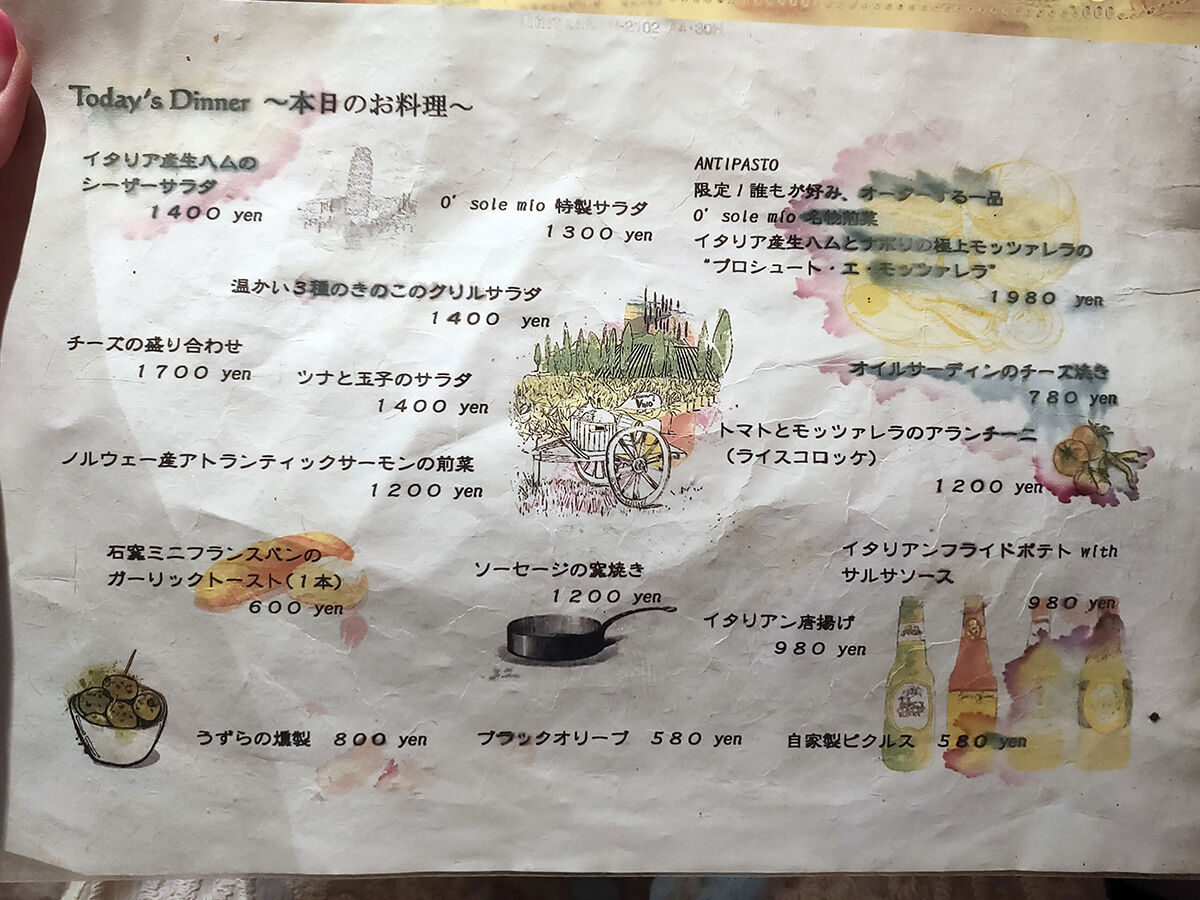 Today's Dinner ～本日のお料理～
イタリア産生ハムの
シーザーサラダ
1400 yen
O' sole mio 特製サラダ
1300 yen
温かい3種のきのこのグリルサラダ
1400 yen
チーズの盛り合わせ
1700 yen
ツナと玉子のサラダ
1400 yen
ノルウェー産アトランティックサーモンの前菜
1200 yen
ANTIPASTO
限定！誰もが好み、オーダーする一品
O' sole mio 名物前菜
イタリア産生ハムとナポリの極上モッツァレラの
“プロシュート・エ・モッツァレラ”
1980 yen
オイルサーディンのチーズ焼き
780 yen
トマトとモッツァレラのアランチーニ
（ライスコロッケ）
1200 yen
石窯ミニフランスパンの
ガーリックトースト（1本）
600 yen
ソーセージの窯焼き
1200 yen
イタリアンフライドポテト with
サルサソース
980 yen
イタリアン唐揚げ
980 yen
うずらの燻製 800 yen
ブラックオリーブ 580 yen
自家製ピクルス 580 yen